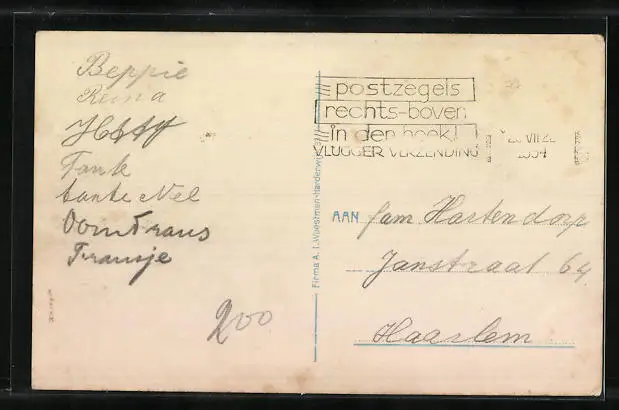 Beppie
Reina
Tante Nel
Oom Frans
Fransje
200
postzegels
rechts-boven
in den hoek!
VLUGGER VERZENDING
Firma A. L. Woestman-Harderwijk
AAN fam Hartendorp
Janstraat 64.
Haarlem